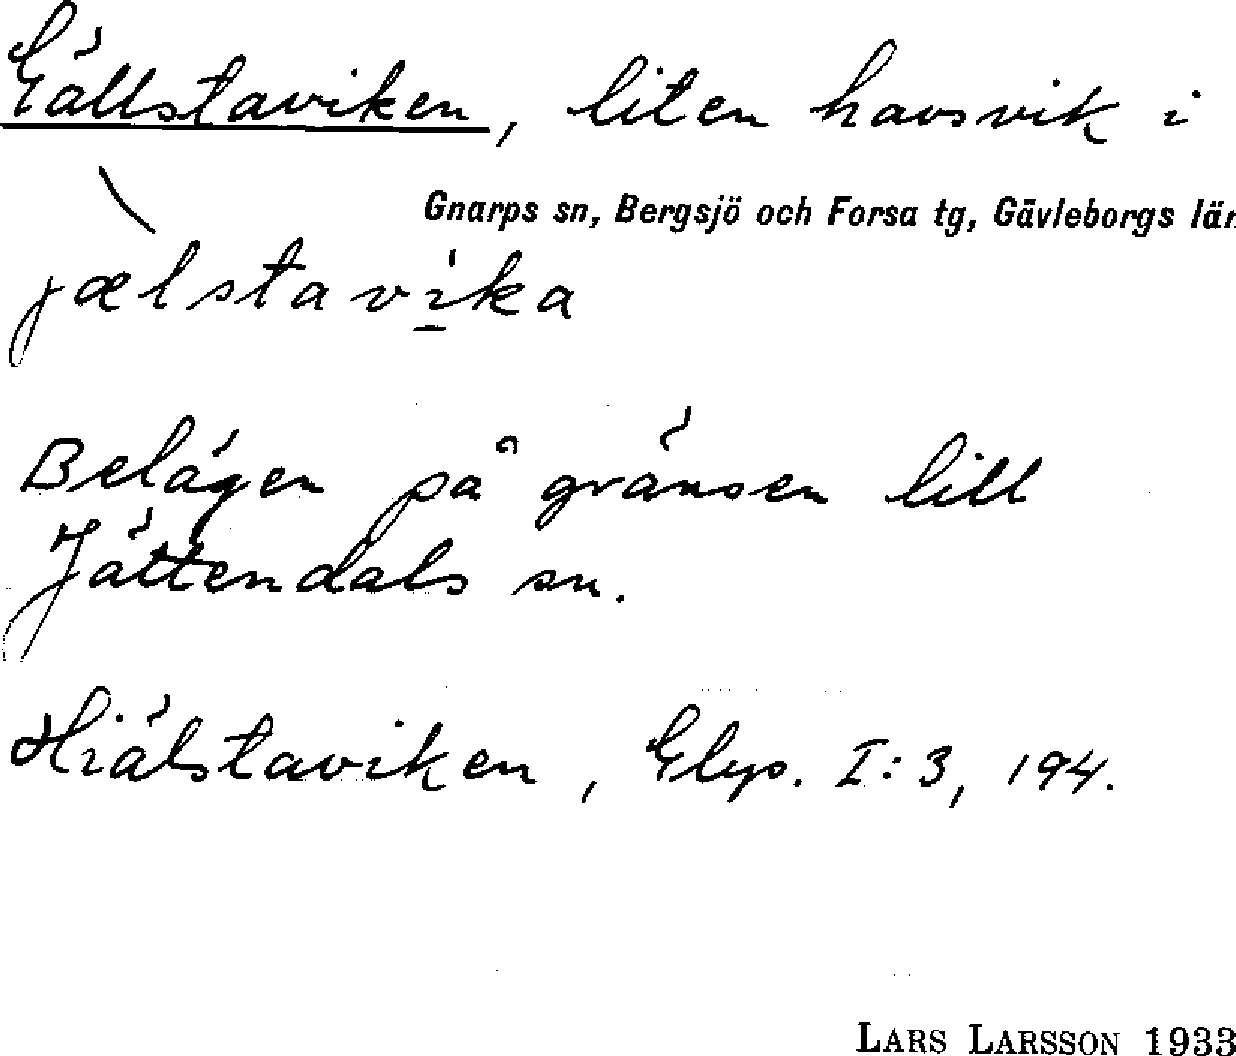 Gällstaviken, liten havsvik i
Gnarps sn, Bergsjö och Forsa tg, Gävleborgs län
jælstavika
Belägen på gränsen till
Jättendals sn.
Hiälstaviken, Glys. I:3, 194.
LARS LARSSON 1933